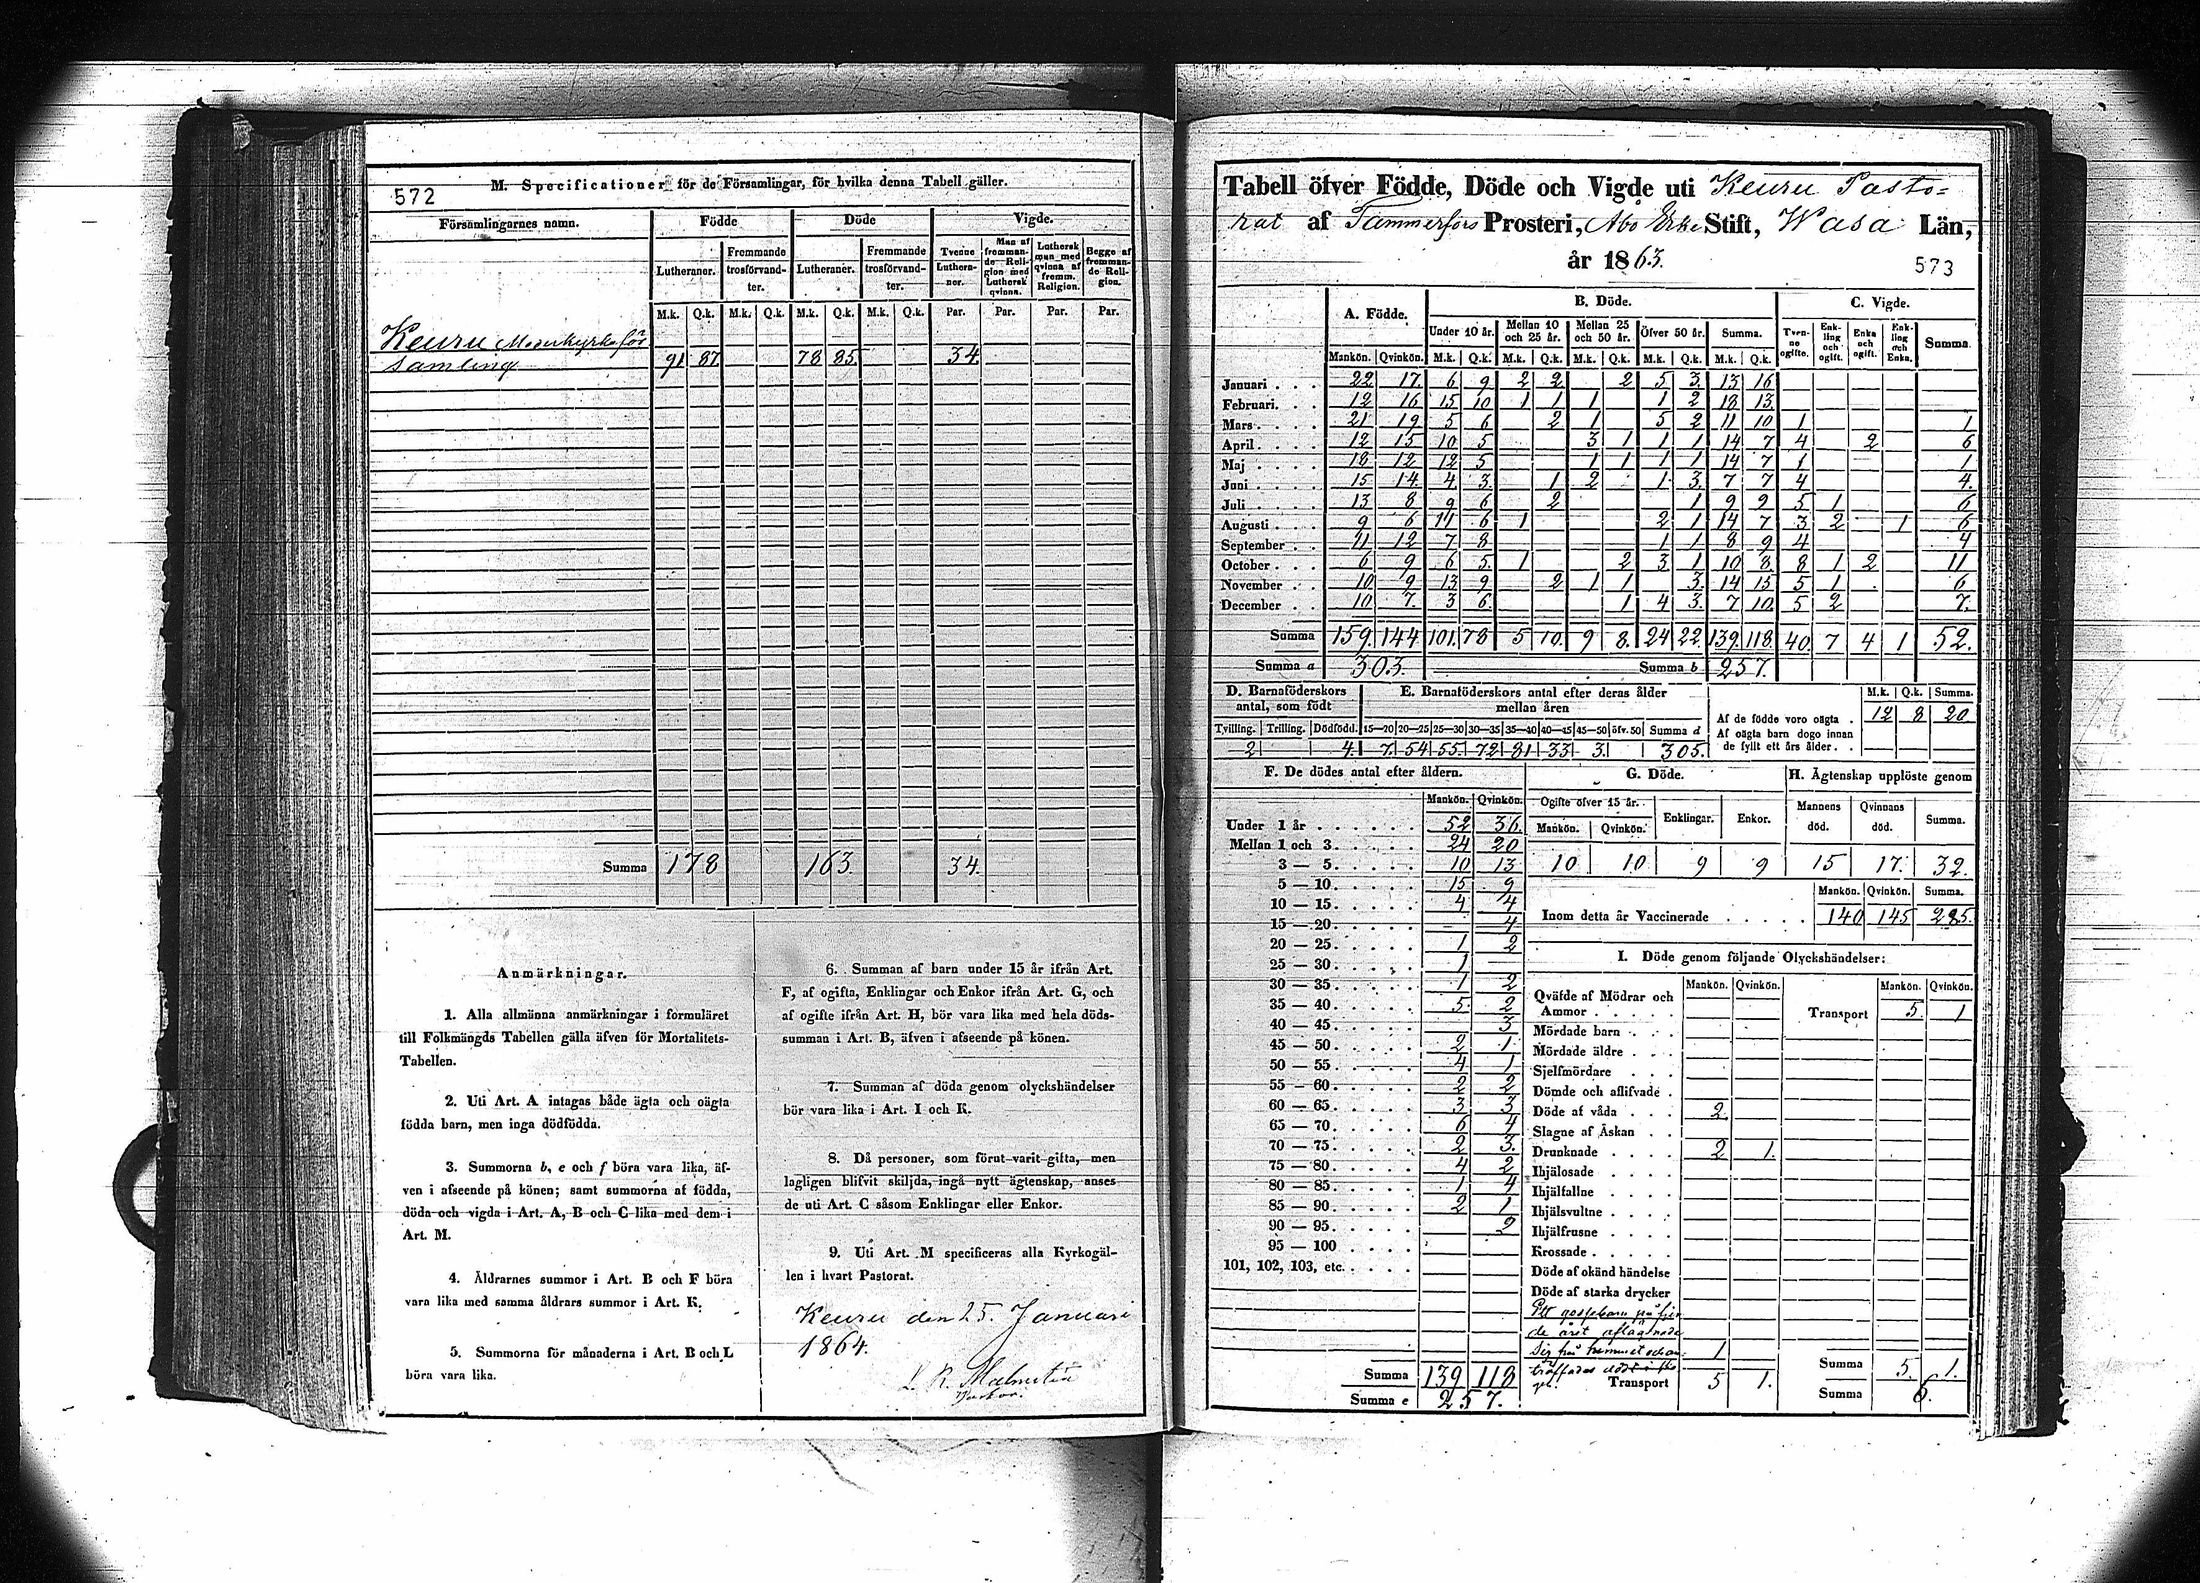 572
M. Specificationer för de Församlingar, för hvilka denna Tabell gäller.
Församlingarnes namn. Födde Döde Vigde.
Lutheraner. Fremmande trosförvandter. Lutheraner. Fremmande trosförvandter. Tvenne Lutheraner. Man af fremmande Religion med Luthersk qvinna. Luthersk man med qvinna af fremm. Religion. Begge af fremmande Religion.
M.k. Q.k. M.k. Q.k. M.k. Q.k. M.k. Q.k. Par. Par. Par. Par.
Keuru Moderkyrkoför
samling 91 87 78 85 34
Summa 178 163 34.
Anmärkningar.
1. Alla allmänna anmärkningar i formuläret
till Folkmängds Tabellen gälla äfven för Mortalitets-
Tabellen.
2. Uti Art. A intagas både ägta och oägta
födda barn, men inga dödfödda.
3. Summorna b, e och f böra vara lika, äf-
ven i afseende på könen; samt summorna af födda,
döda och vigda i Art. A, B och C lika med dem i
Art. M.
4. Åldrarnes summor i Art. B och F böra
vara lika med samma åldrars summor i Art. K.
5. Summorna för månaderna i Art. B och L
böra vara lika.
6. Summan af barn under 15 år ifrån Art.
F, af ogifta, Enklingar och Enkor ifrån Art. G, och
af ogifte ifrån Art. H, bör vara lika med hela döds-
summan i Art. B, äfven i afseende på könen.
7. Summan af döda genom olyckshändelser
bör vara lika i Art. I och K.
8. Då personer, som förut varit gifta, men
lagligen blifvit skiljda, ingå nytt ägtenskap, anses
de uti Art. C såsom Enklingar eller Enkor.
9. Uti Art. M specificeras alla Kyrkogäl-
len i hvart Pastorat.
Keuru den 25. Januari
1864.
Tabell öfver Födde, Döde och Vigde uti Keuru Pasto-
rat af Tammerfors Prosteri, Åbo Erke Stift, Wasa Län,
år 1863.
573
A. Födde. B. Döde. C. Vigde.
Under 10 år. Mellan 10 och 25 år. Mellan 25 och 50 år. Öfver 50 år. Summa. Tvenne ogifte. Enkling och ogift. Enka och ogift. Enkling och Enka. Summa
Mankön. Qvinkön. M.k. Q.k. M.k. Q.k. M.k. Q.k. M.k. Q.k. M.k. Q.k.
Januari 22 17. 6 9 2 2 2 5 3. 13 16
Februari. 12 16 15 10 1 1 1 1 2 18 13.
Mars 21 19 5 6 2 1 5 2 11 10 1 1
April 12 15 10 5 3 1 1 1 14 7 4 2 6
Maj 18 12 12 5 1 1 1 1 14 7 1 1
Juni 15 14. 4 3. 1 2 1 3. 7 7 4 4.
Juli 13 8 9 6 2 1 9 9 5 1 6
Augusti 9 6 11 6 1 2 1 14 7 3 2 1 6
September 11 12 7 8 1 1 8 9 4 4
October 6 9 6 5. 1 2 3 1 10 8. 8 1 2 11
November 10 9 13 9 2 1 1 3. 14 15 5 1 6
December 10 7. 3 6. 1 4 3. 7 10. 5 2 7.
Summa 159. 144 101. 78 5 10. 9 8. 24 22. 139. 118. 40. 7 4 1 52.
Summa a 303. Summa b 257.
D. Barnaföderskors antal, som födt E. Barnaföderskors antal efter deras ålder mellan åren
Tvilling. Trilling. Dödfödd. 15—20 20—25 25—30 30—35 35—40 40—45 45—50 öfv. 50 Summa d
2 4. 7. 54 55. 72 81 33 3. 305.
M.k. Q.k. Summa.
Af de födde voro oägta . 12 8 20
Af oägta barn dogo innan
de fyllt ett års ålder. .
F. De dödes antal efter åldern.
Mankön. Qvinkön.
Under 1 år 52 36.
Mellan 1 och 3. 24 20
3 — 5. 10 13
5 — 10. 15 9
10 — 15. 4 4
15 — 20. 4
20 — 25. 1 2
25 — 30. 1
30 — 35. 1 2
35 — 40. 5. 2
40 — 45. 3
45 — 50. 2 1
50 — 55. 4 1
55 — 60. 2 2
60 — 65. 3 3
65 — 70. 6 4
70 — 75. 2 3.
75 — 80. 4 2
80 — 85. 1 4
85 — 90. 2 1
90 — 95. 2
95 — 100
101, 102, 103, etc.
Summa 139 118
Summa e 257.
G. Döde. H. Ägtenskap upplöste genom
Ogifte öfver 15 år. Enklingar. Enkor. Mannens död. Qvinnans död. Summa.
Mankön. Qvinkön.
10 10. 9 9 15 17. 32.
Mankön. Qvinkön. Summa.
Inom detta år Vaccinerade 140 145 285.
I. Döde genom följande Olyckshändelser:
Mankön. Qvinkön. Mankön. Qvinkön.
Qväfde af Mödrar och
Ammor Transport 5. 1
Mördade barn
Mördade äldre
Sjelfmördare
Dömde och aflifvade
Döde af våda 2.
Slagne af Åskan
Drunknade 2 1.
Ihjälosade
Ihjälfallne
Ihjälsvultne
Ihjälfrusne
Krossade
Döde af okänd händelse
Döde af starka drycker
de året aflägsnade
sig från hemmet och an- 1
träffades död
Transport 5 1.
Summa 5. 1.
Summa 6.